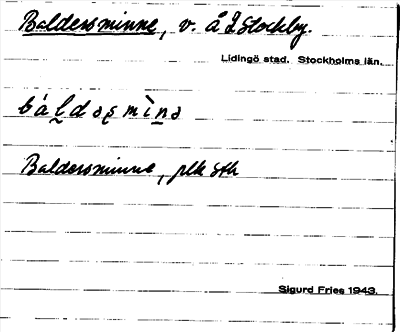 Baldersminne, v. å Stockby.
Lidingö stad. Stockholms län.
Baldersminne, plk sth
Sigurd Fries 1943.